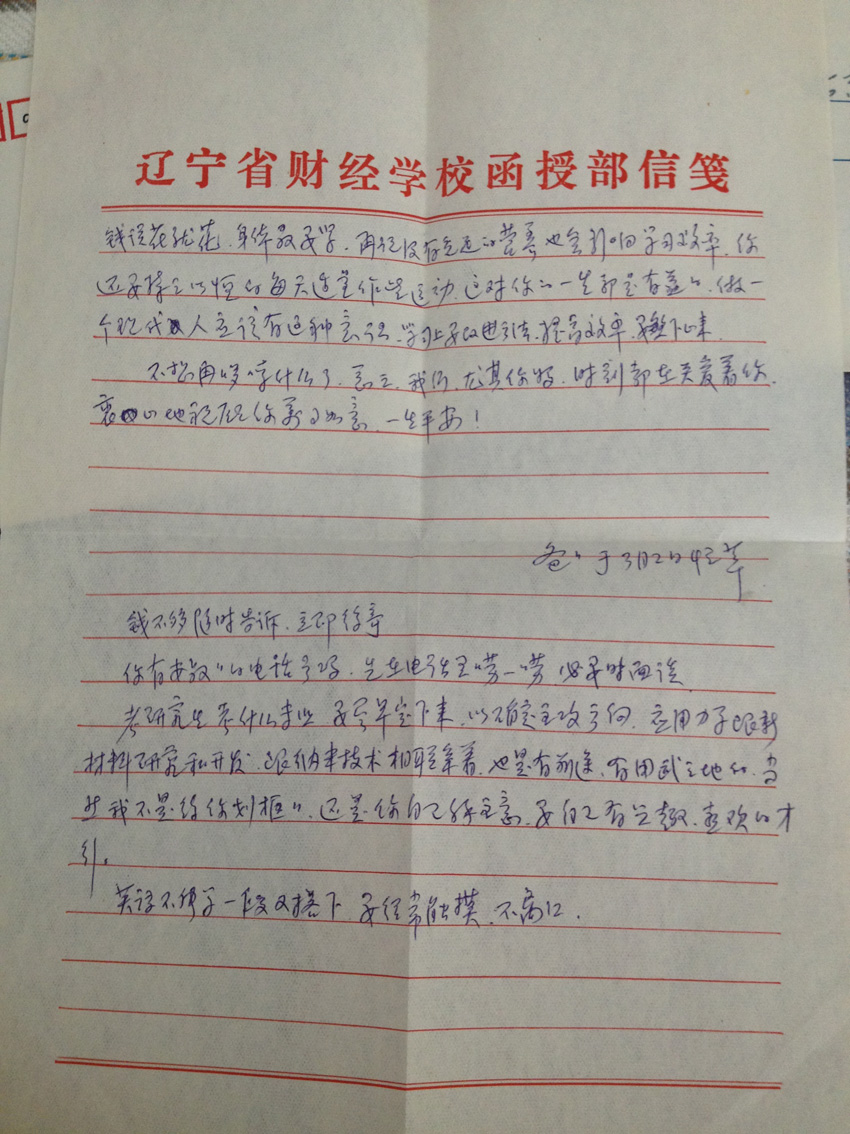 辽宁省财经学校函授部信笺
钱该花就花,身体最要紧,再说没有足够的营养也会影响学习效率,你
还要持之以恒的每天适量作些运动,这对你的一生都是有益的,做一
个现代人应该有这种意识,学习上要改进方法,提高效率,
不想再多啰嗦什么了,总之,我们,尤其你妈,时刻都在关爱着你,
衷心地祝愿你万事如意,一生平安!
爸爸于3月2日
钱不够随时告诉,立即给寄
你有叔叔的电话号码,先在电话里唠一唠 必要时面谈
考研究生 考什么专业 要尽早定下来,以确定主攻方向,应用力学跟新
材料研究和开发,跟纳米技术相联系着,也是有前途,有用武之地的,当
然我不是给你划框框,还是你自己拿主意,要自己有兴趣,喜欢的才
行。
英语不能学一段又撂下 要经常触摸,不离口.